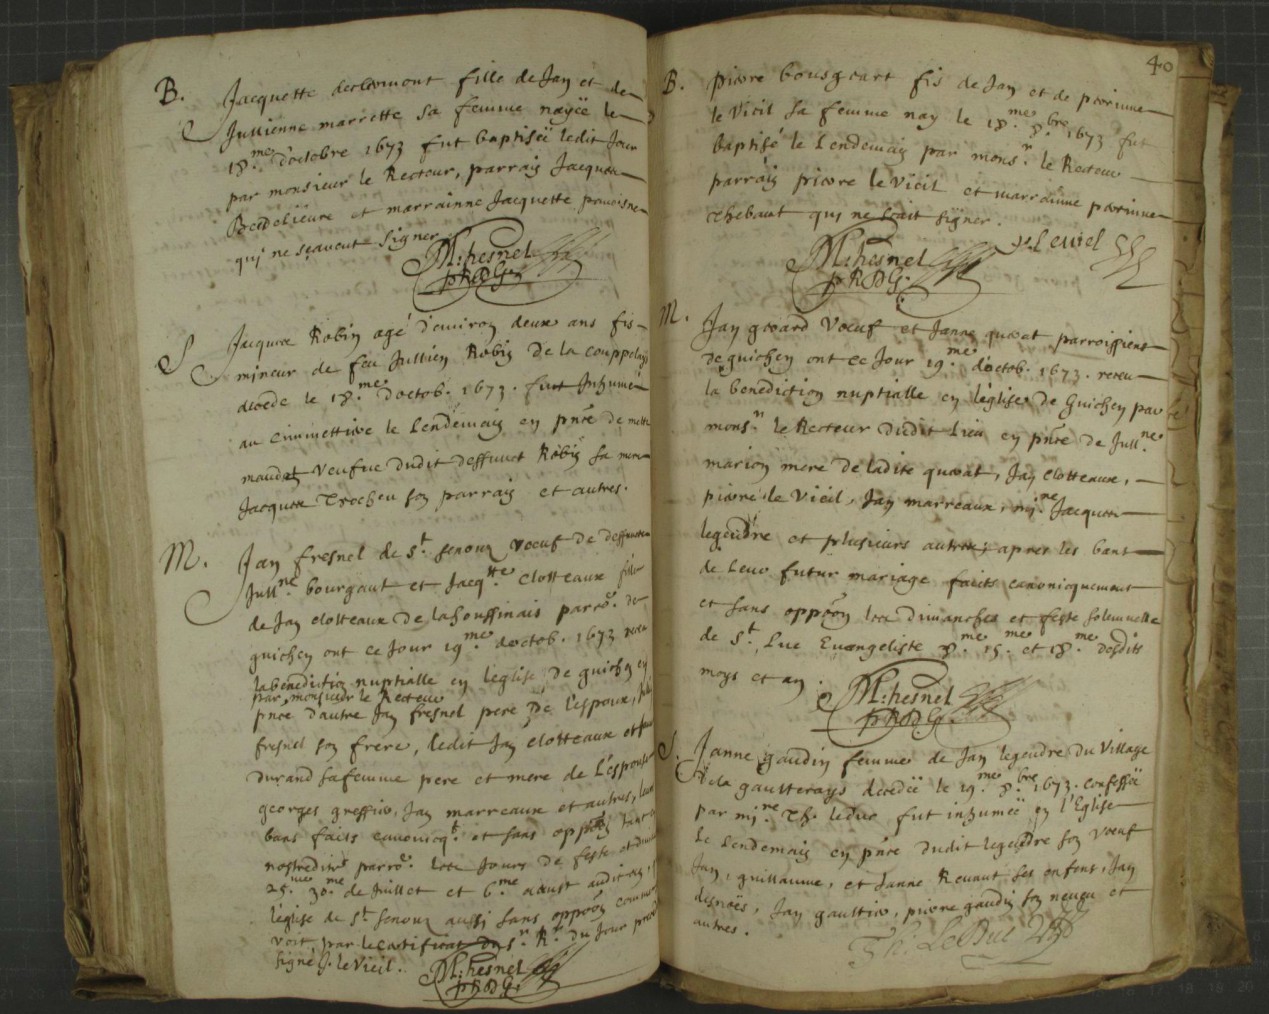 B. Jacquette declermont fille de Jan et de
Jullienne marrette sa femme nayëe le
18.me d'octobre 1673 fut baptiseë ledit Jour
par monsieur le Recteur, parrain Jacques
et marrainne Jacquette
qui ne sçavent signer.
M: hesnel
pRDG.
S Jacques Robin agé d'environ deux ans fis
mineur de feu Jullien Robin de la couppelays
decedé le 18.me d'octob. 1673. fut Inhumé
au cimmettiere le lendemain en pñce de
veufve dudit deffunct Robin sa mere
Jacques Trocheu son parrain et autres.
M. Jan fresnel de St. senoux voeuf de deffuncte
Jull.ne bourgaut et Jacq.tte clotteaux fille
de Jan clotteaux de la houssinais parro. de
guichen ont ce Jour 19.me d'octob. 1673 receu
la benediction nuptialle en leglise de guichen en
par monsieur le Recteur
pñce d'autre Jan fresnel pere de l'espoux,
fresnel son frere, ledit Jan clotteaux et
durand sa femme pere et mere de l'espouse
georges greffier, Jan marreaux et autres, leurs
bans faits canonicq.t et sans oppõn tant en
nostredite parro. les Jours de feste et
25.me 30.me de Juillet et 6.me aoust
l'eglise de St. senoux aussi sans oppõn comme
voit par le certificat du s.r R.r du Jour
signé J. le Vieil.
M: hesnel
pRDG.
40
B. pierre bourgeart fis de Jan et de perrinne
le Vieil sa femme nay le 18.me 8.bre 1673 fut
baptisé le lendemain par mons.r le Recteur
parrain pierre le Vieil et marrainne perrinne
Thebaut qui ne sçait signer.
M: hesnel
pRDG.
M. Jan gerard voeuf et Janne querat parroissiens
de guichen ont ce Jour 19.me d'octob. 1673. receu
la benediction nuptialle en l'eglise de Guichen par
mons.r le Recteur dudit lieu en pñce de Jull.ne
marion mere de ladite querat, Jan clotteaux,
pierre le Vieil, Jan marreaux, Jacques
legendre et plusieurs autres, apres les bans
de leur futur mariage faits canonicquement
et sans oppõn les dimanches et feste solennelle
de St. Luc Evangeliste 8.me 15.me et 18.me desdits
moys et an.
M: hesnel
pRDG
S. Janne gaudin femme de Jan legendre du Village
de la gautterays decedëe le 19.me 8.bre 1673. confesseë
par Th. leduc fut inhumeë en l'Eglise
le lendemain en pñce dudit legendre son voeuf
Jan, guillaume, et Janne Renaut ses enfens, Jan
Jan gaultier, pierre gaudin son neveu et
autres.
Th. Le Duc